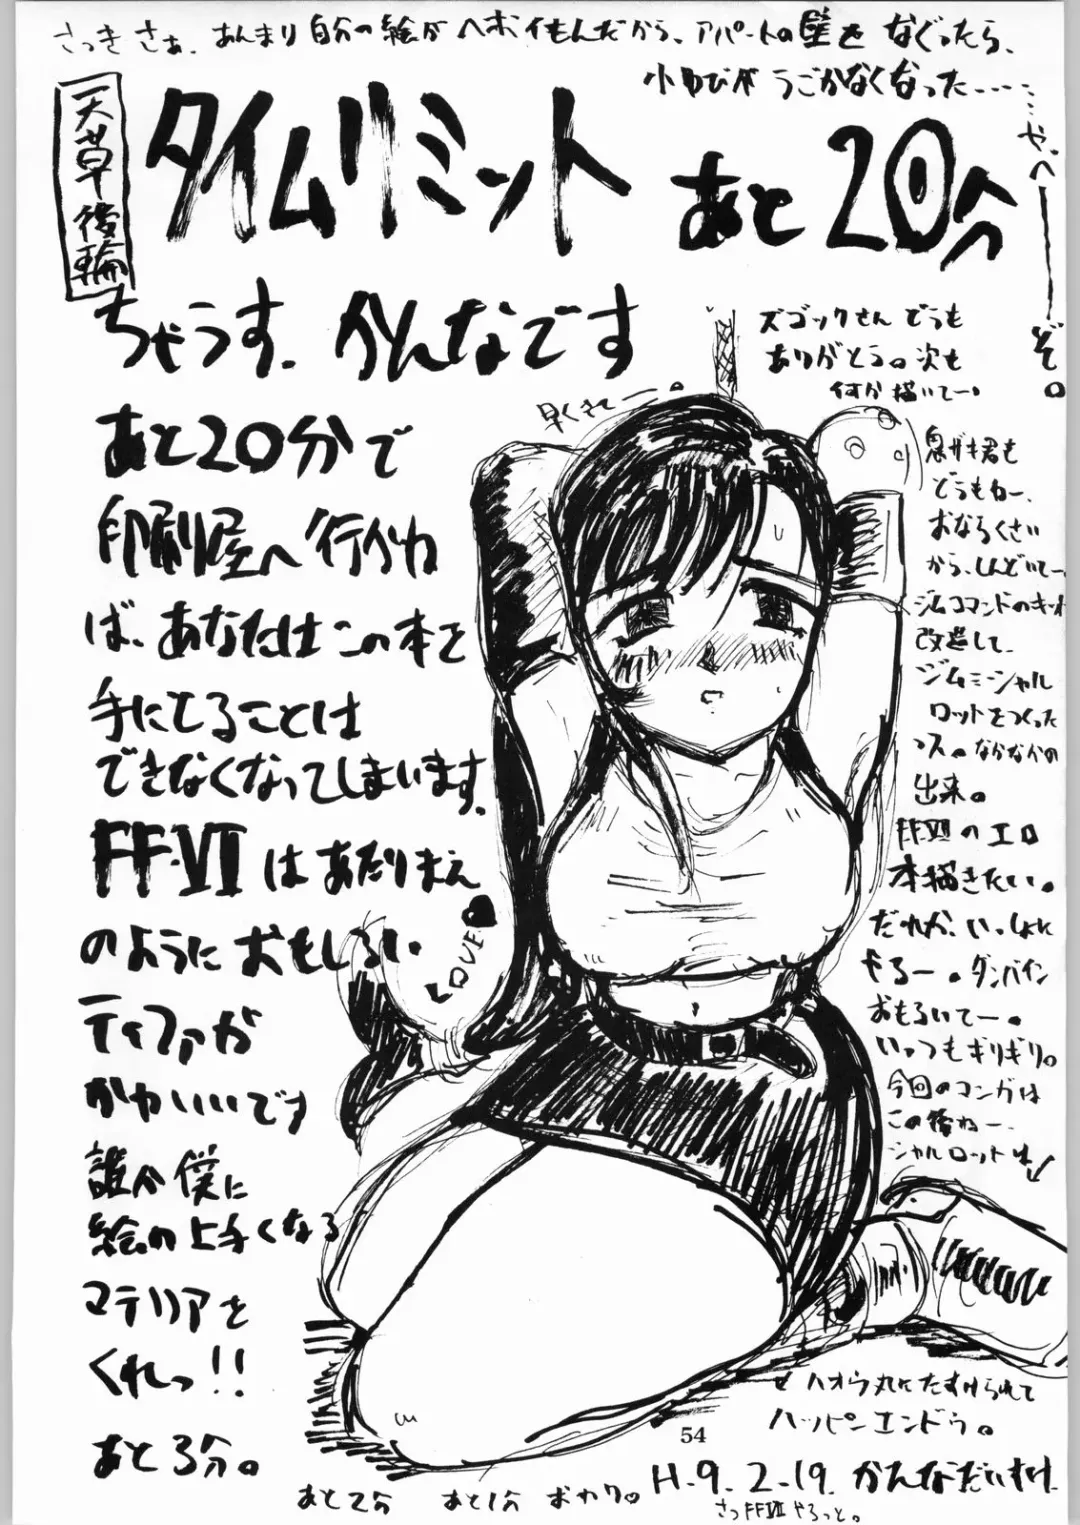 さっきさぁ、あんまり自分の絵がヘボイもんだから、アパートの壁をなぐったら、
小ゆびがうごかなくなった……
…やべーーぞ。
天草後輪
タイムリミット あと20分
ちゃうす、かんなです
あと20分で
印刷屋へ行かね
ば、あなたはこの本を
手にてることは
できなくなってしまいます。
FF.VII はあたりまえ
のようにおもしろい
ティファが
かわいいです
誰か僕に
絵の上手くなる
マテリアを
くれっ!!
あと3分。
あと2分 あと1分 おわり。
早くきてー。
LOVE
ズゴックさん どうも
ありがとう。次も
何か描いてー。
息ザキ君も
どうもねー、
おならくさい
から、しんどいてー
ジムコマンドのキット
改造して、
ジムミーシャル
ロットをつくった
っス。なかなかの
出来。
FF.VIIのエロ
本描きたい。
だれか、いっしょに
やろー。ダンバイン
おもろいてー。
いっつもギリギリ。
今回のコンガは
この後ねー、
シャルロットは
ハオウ丸にたすけられて
ハッピンエンドゥ。
54
H.9.2.19. かんなだいすけ
さっFFVIIやろっと。